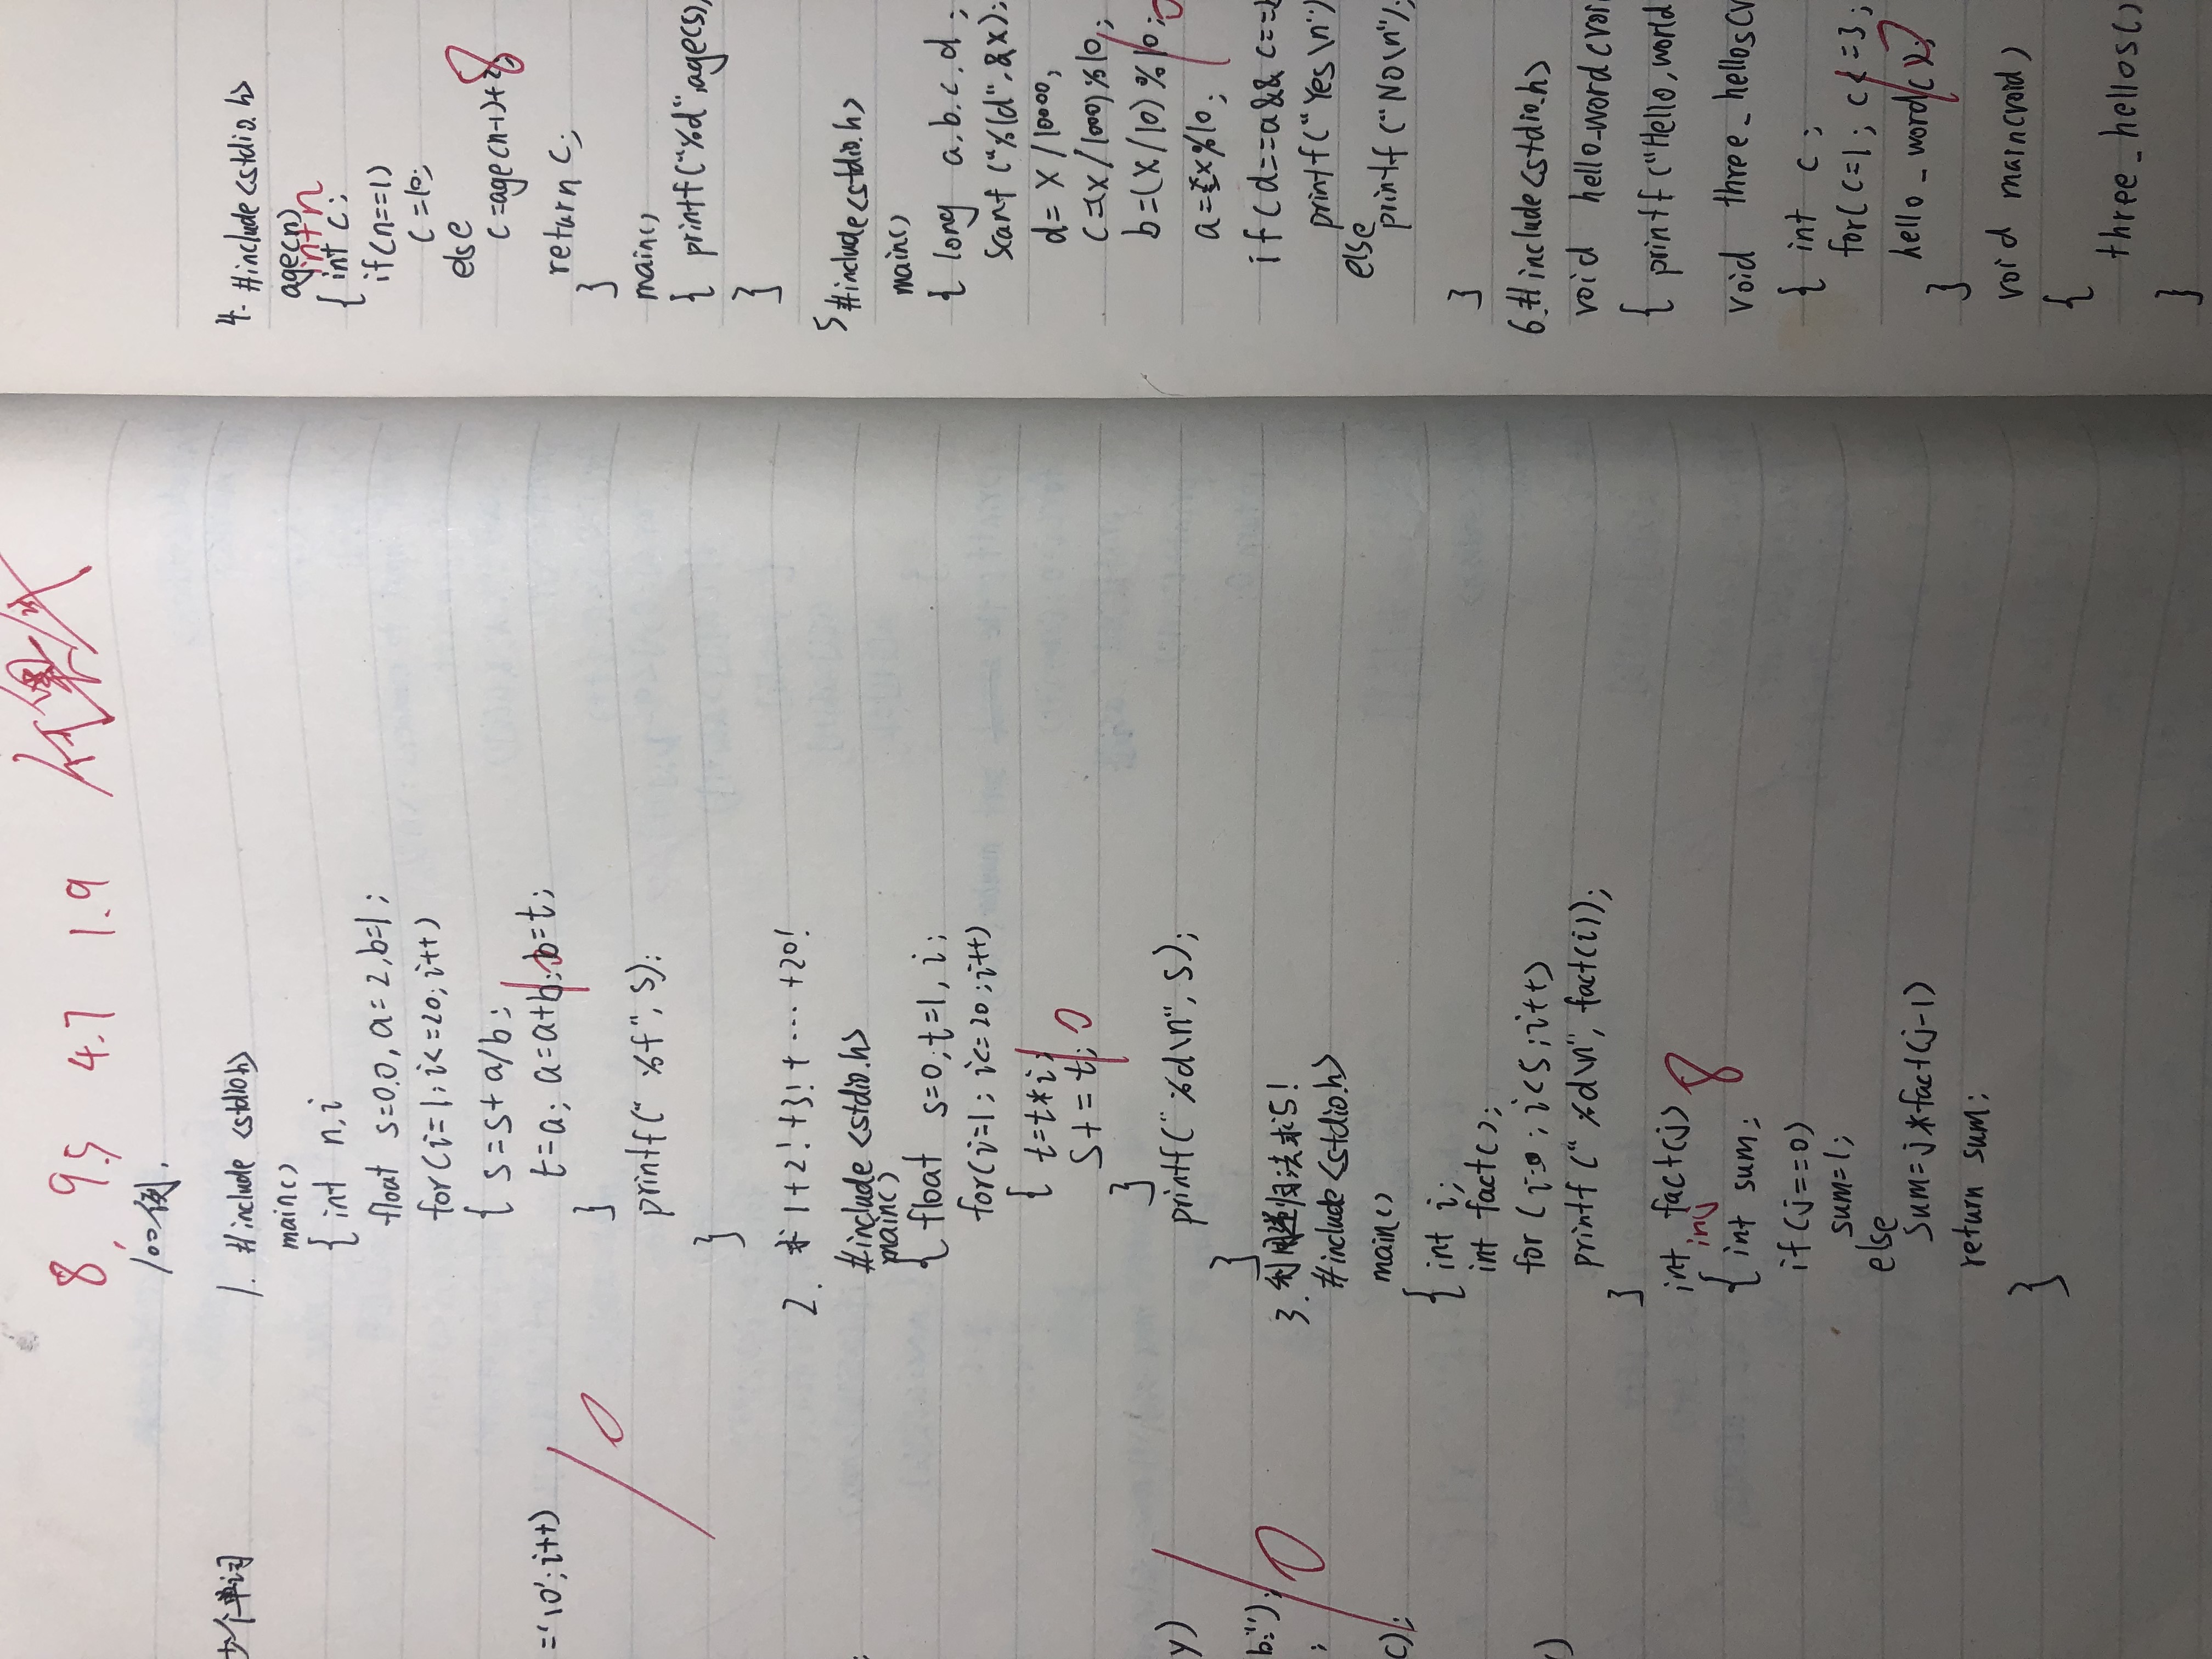 少个单词
='\0';i++)
10
y)
b:");
;
10
c);
8 9.5 4.7 1.9
100例.
1. #include <stdio.h>
main()
{ int n,i
float s=0.0, a=2,b=1;
for(i=1;i<=20;i++)
{ s=s+a/b;
t=a; a=a+b;b=t;
}
printf("%f",s);
}
2. 求1+2!+3!+...+20!
#include<stdio.h>
main()
{ float s=0,t=1,i;
for(i=1;i<=20;i++)
{ t=t*i;
S+=t;
10
}
printf("%d\n",s);
}
3. 利用递归法求5!
#include<stdio.h>
main()
{ int i;
int fact();
for(i=0;i<5;i++)
printf("%d\n",fact(i));
}
int fact(j)
int j
8
{ int sum;
if(j==0)
sum=1;
else
sum=j*fact(j-1)
return sum;
}
4. #include<stdio.h>
age(n)
int n
{ int c;
if(n==1)
c=10;
else
c=age(n-1)+2;
8
return c;
}
main()
{ printf("%d",age(5)
}
5 #include<stdio.h>
main()
{ long a,b,c,d;
scanf("%ld",&x);
d=x/10000,
c=(x/1000)%10;
b=(x/10)%10;
a=x%10;
if(d==a&&c==
printf("Yes\n")
else
printf("No\n");
}
6.#include<stdio.h>
void hello_word(voi
{ printf("Hello,world
void three_hellos(v
{ int c;
for(c=1;c<=3;
hello_word();
}
void main(void)
{
three_hellos()
}